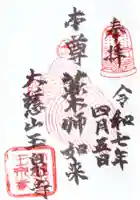 奉拝
令和七年
四月五日
本尊 薬師如来
大慈山玉泉寺